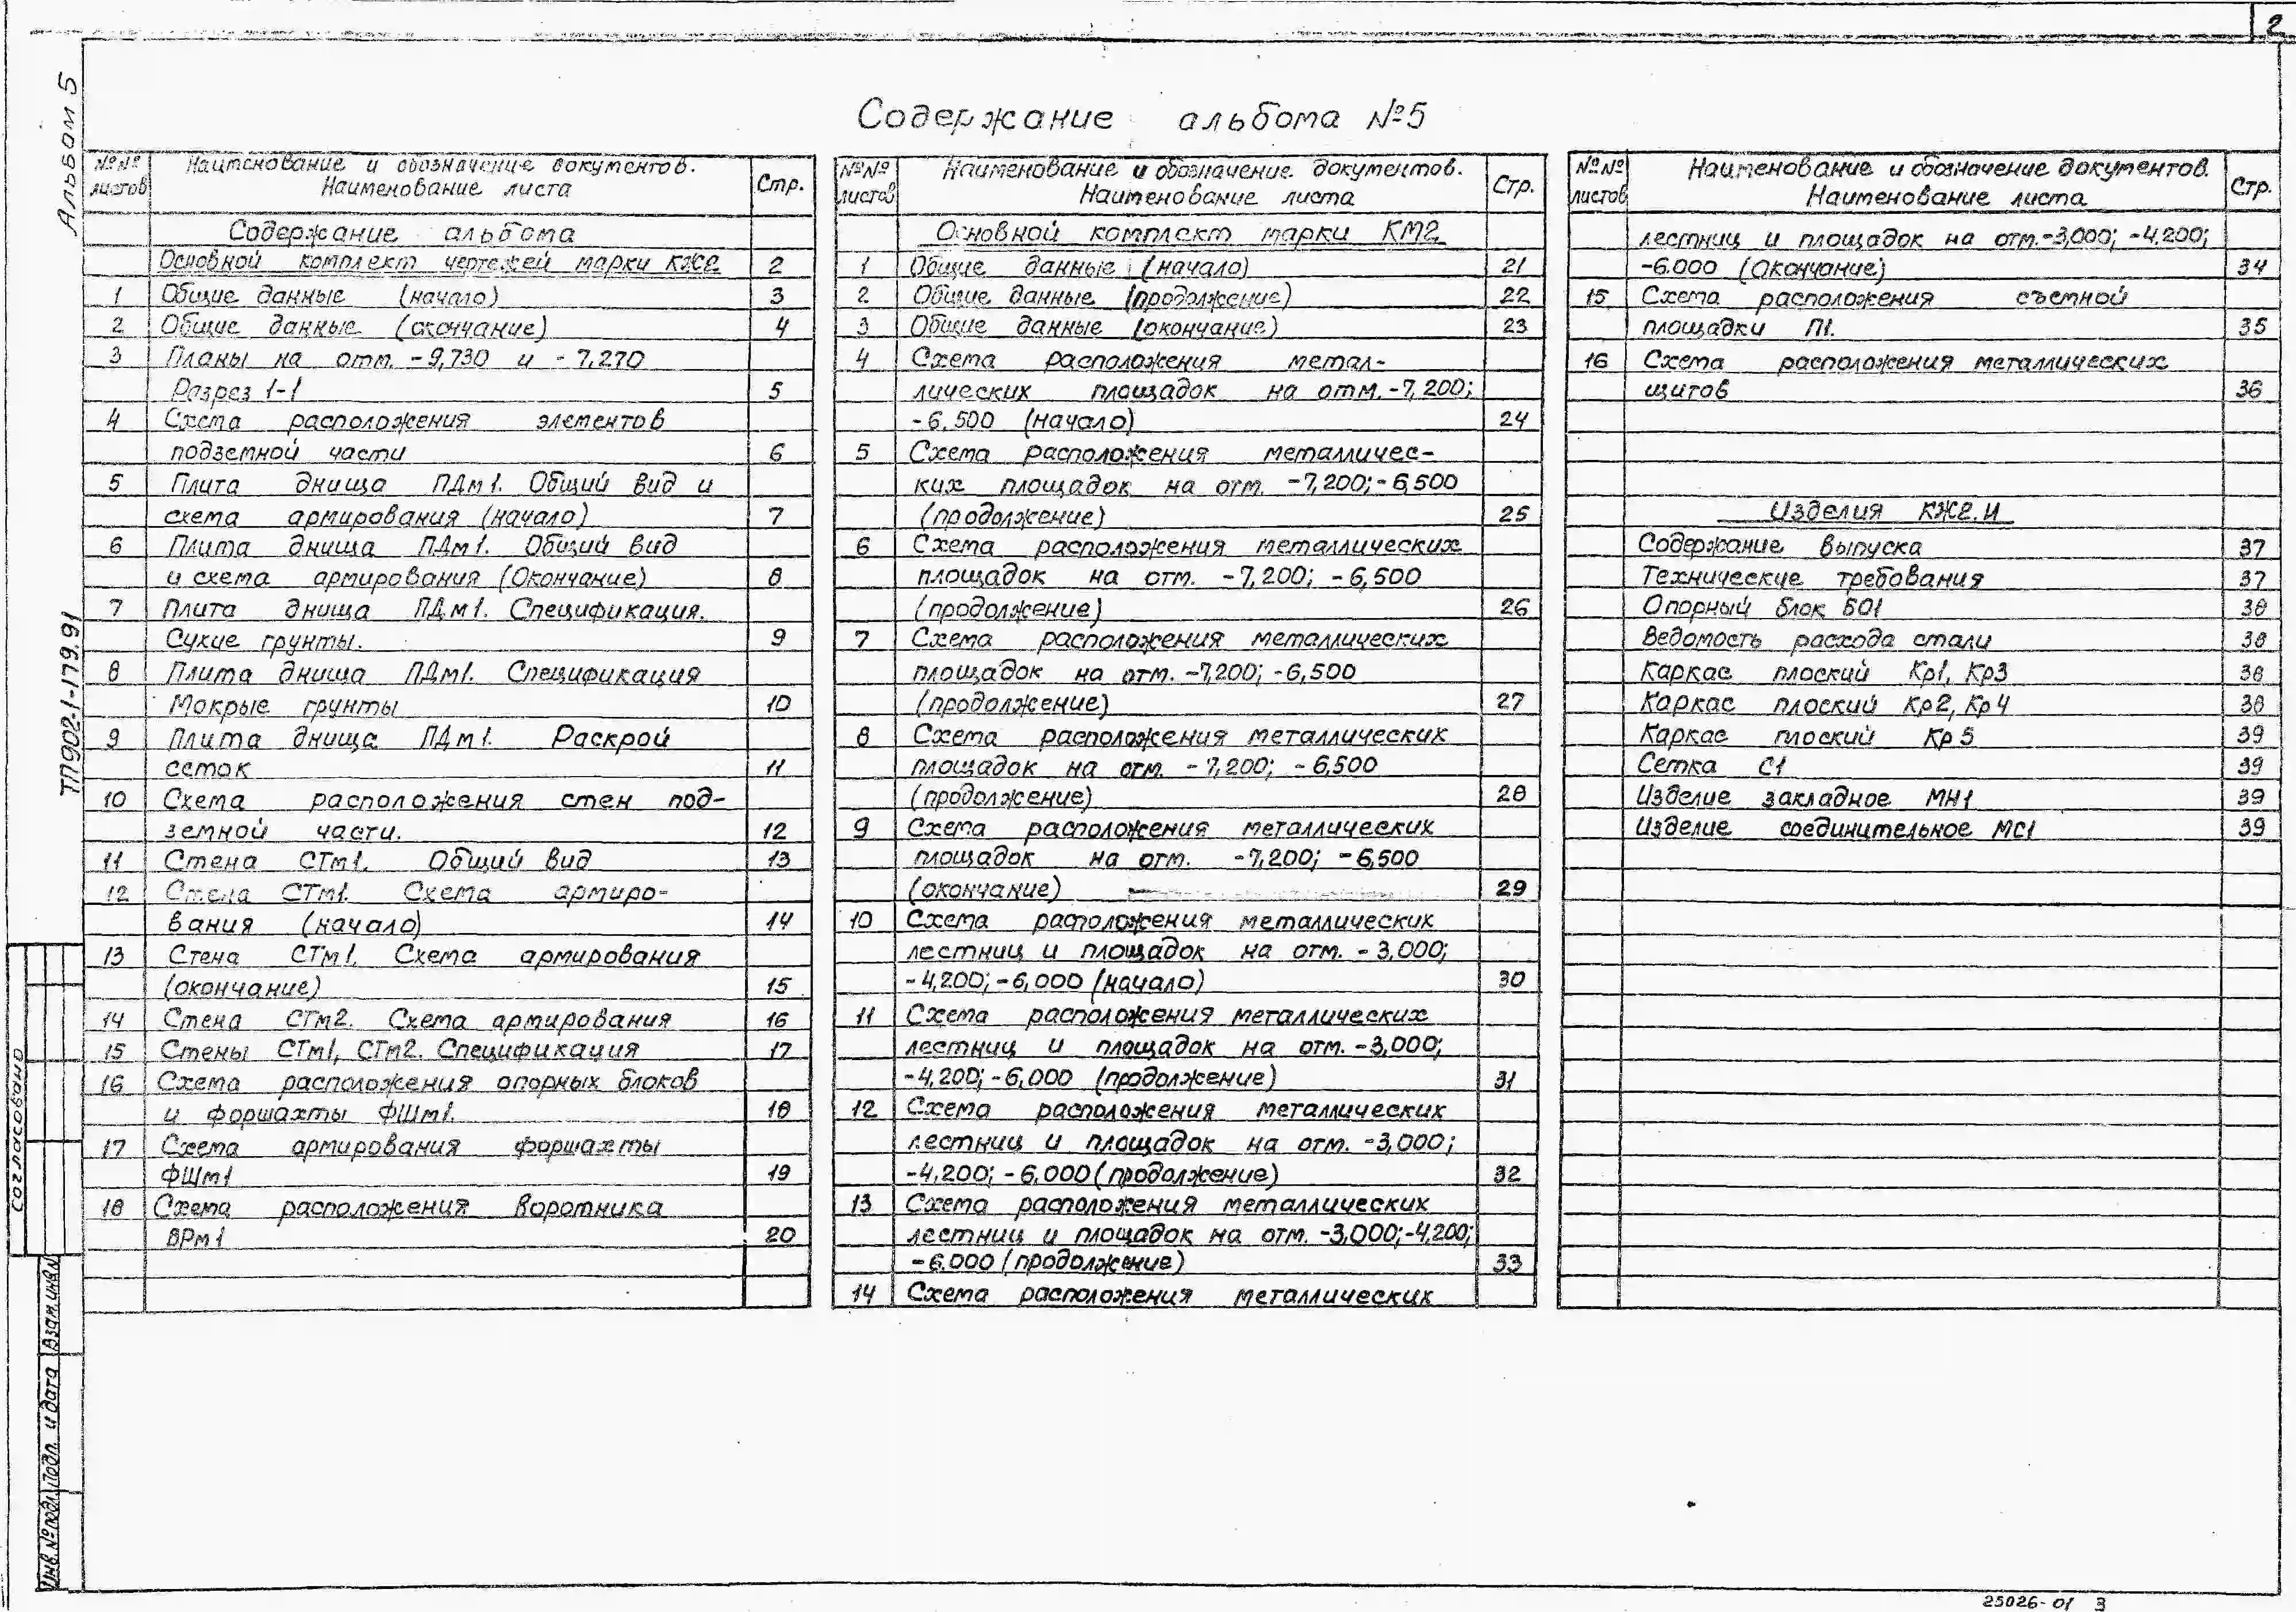 2
Альбом 5
Содержание альбома №5
№№ листов
Наименование и обозначение документов.
Наименование листа
Стр.
Содержание альбома
Основной комплект чертежей марки КЖ2 2
1 Общие данные (начало) 3
2 Общие данные (окончание) 4
3 Планы на отм. -9,730 и -7,270
Разрез 1-1 5
4 Схема расположения элементов
подземной части 6
5 Плита днища ПДм1. Общий вид и
схема армирования (начало) 7
6 Плита днища ПДм1. Общий вид
и схема армирования (Окончание) 8
7 Плита днища ПДм1. Спецификация.
Сухие грунты. 9
8 Плита днища ПДм1. Спецификация
Мокрые грунты 10
9 Плита днища ПДм1. Раскрой
сеток 11
10 Схема расположения стен под-
земной части. 12
11 Стена СТм1. Общий вид 13
12 Стена СТм1. Схема армиро-
вания (начало) 14
13 Стена СТм1. Схема армирования
(окончание) 15
14 Стена СТм2. Схема армирования 16
15 Стены СТм1, СТм2. Спецификация 17
16 Схема расположения опорных блоков
и форшахты ФШм1. 18
17 Схема армирования форшахты
ФШм1 19
18 Схема расположения воротника
ВРм1 20
№№ листов
Наименование и обозначение документов.
Наименование листа
Стр.
Основной комплект марки КМ2
1 Общие данные (начало) 21
2 Общие данные (продолжение) 22
3 Общие данные (окончание) 23
4 Схема расположения метал-
лических площадок на отм. -7,200;
-6,500 (начало) 24
5 Схема расположения металличес-
ких площадок на отм. -7,200; -6,500
(продолжение) 25
6 Схема расположения металлических
площадок на отм. -7,200; -6,500
(продолжение) 26
7 Схема расположения металлических
площадок на отм. -7,200; -6,500
(продолжение) 27
8 Схема расположения металлических
площадок на отм. -7,200; -6,500
(продолжение) 28
9 Схема расположения металлических
площадок на отм. -7,200; -6,500
(окончание) 29
10 Схема расположения металлических
лестниц и площадок на отм. -3,000;
-4,200; -6,000 (начало) 30
11 Схема расположения металлических
лестниц и площадок на отм. -3,000;
-4,200; -6,000 (продолжение) 31
12 Схема расположения металлических
лестниц и площадок на отм. -3,000;
-4,200; -6,000 (продолжение) 32
13 Схема расположения металлических
лестниц и площадок на отм. -3,000; -4,200;
-6.000 (продолжение) 33
14 Схема расположения металлических
№№ листов
Наименование и обозначение документов.
Наименование листа
Стр.
лестниц и площадок на отм. -3,000; -4,200;
-6.000 (Окончание) 34
15 Схема расположения съемной
площадки П1. 35
16 Схема расположения металлических
щитов 36
Изделия КЖ2.И
Содержание выпуска 37
Технические требования 37
Опорный блок БО1 38
Ведомость расхода стали 38
Каркас плоский Кр1, Кр3 38
Каркас плоский Кр2, Кр4 38
Каркас плоский Кр5 39
Сетка С1 39
Изделие закладное МН1 39
Изделие соединительное МС1 39
ТП902-1-179.91
Согласовано
Взам.инв№
Подп. и дата
Инв.№подл.
25026-01 3